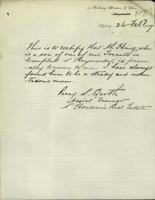 Sydney 26 Feb 09
This is to certify that Ah Hing, who
is a son of one of our Tenants in
Campbell St Haymarket, is person-
ally known to me. I have always
found him to be a steady and indus-
trious man.
Percy S. Booth
S Hordern's Real Estate